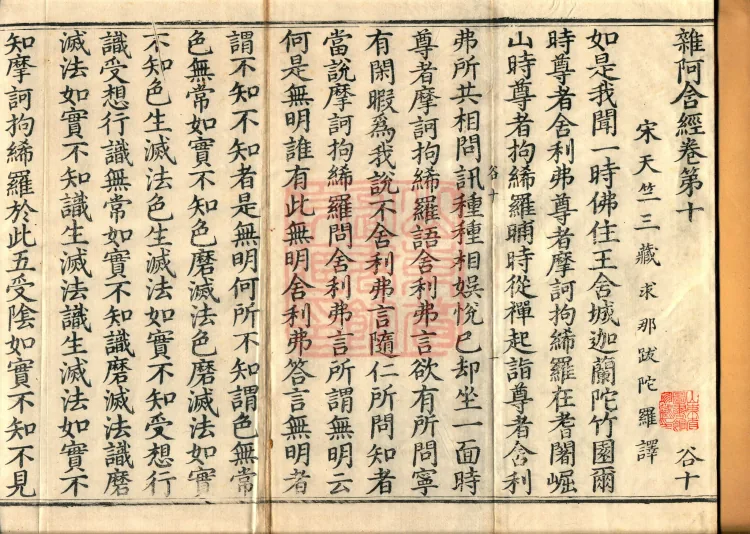 雜阿含經卷第十 谷十
宋天竺三藏求那跋陀羅譯
如是我聞一時佛住王舍城迦蘭陀竹園爾
時尊者舍利弗尊者摩訶拘絺羅在耆闍崛
山時尊者拘絺羅晡時從禪起詣尊者舍利
谷十
弗所共相問訊種種相娛悅已却坐一面時
尊者摩訶拘絺羅語舍利弗言欲有所問寧
有閑暇爲我說不舍利弗言隨仁所問知者
當說摩訶拘絺羅問舍利弗言所謂無明云
何是無明誰有此無明舍利弗答言無明者
謂不知不知者是無明何所不知謂色無常
色無常如實不知色磨滅法色磨滅法如實
不知色生滅法色生滅法如實不知受想行
識受想行識無常如實不知識磨滅法識磨
滅法如實不知識生滅法識生滅法如實不
知摩訶拘絺羅於此五受陰如實不知不見